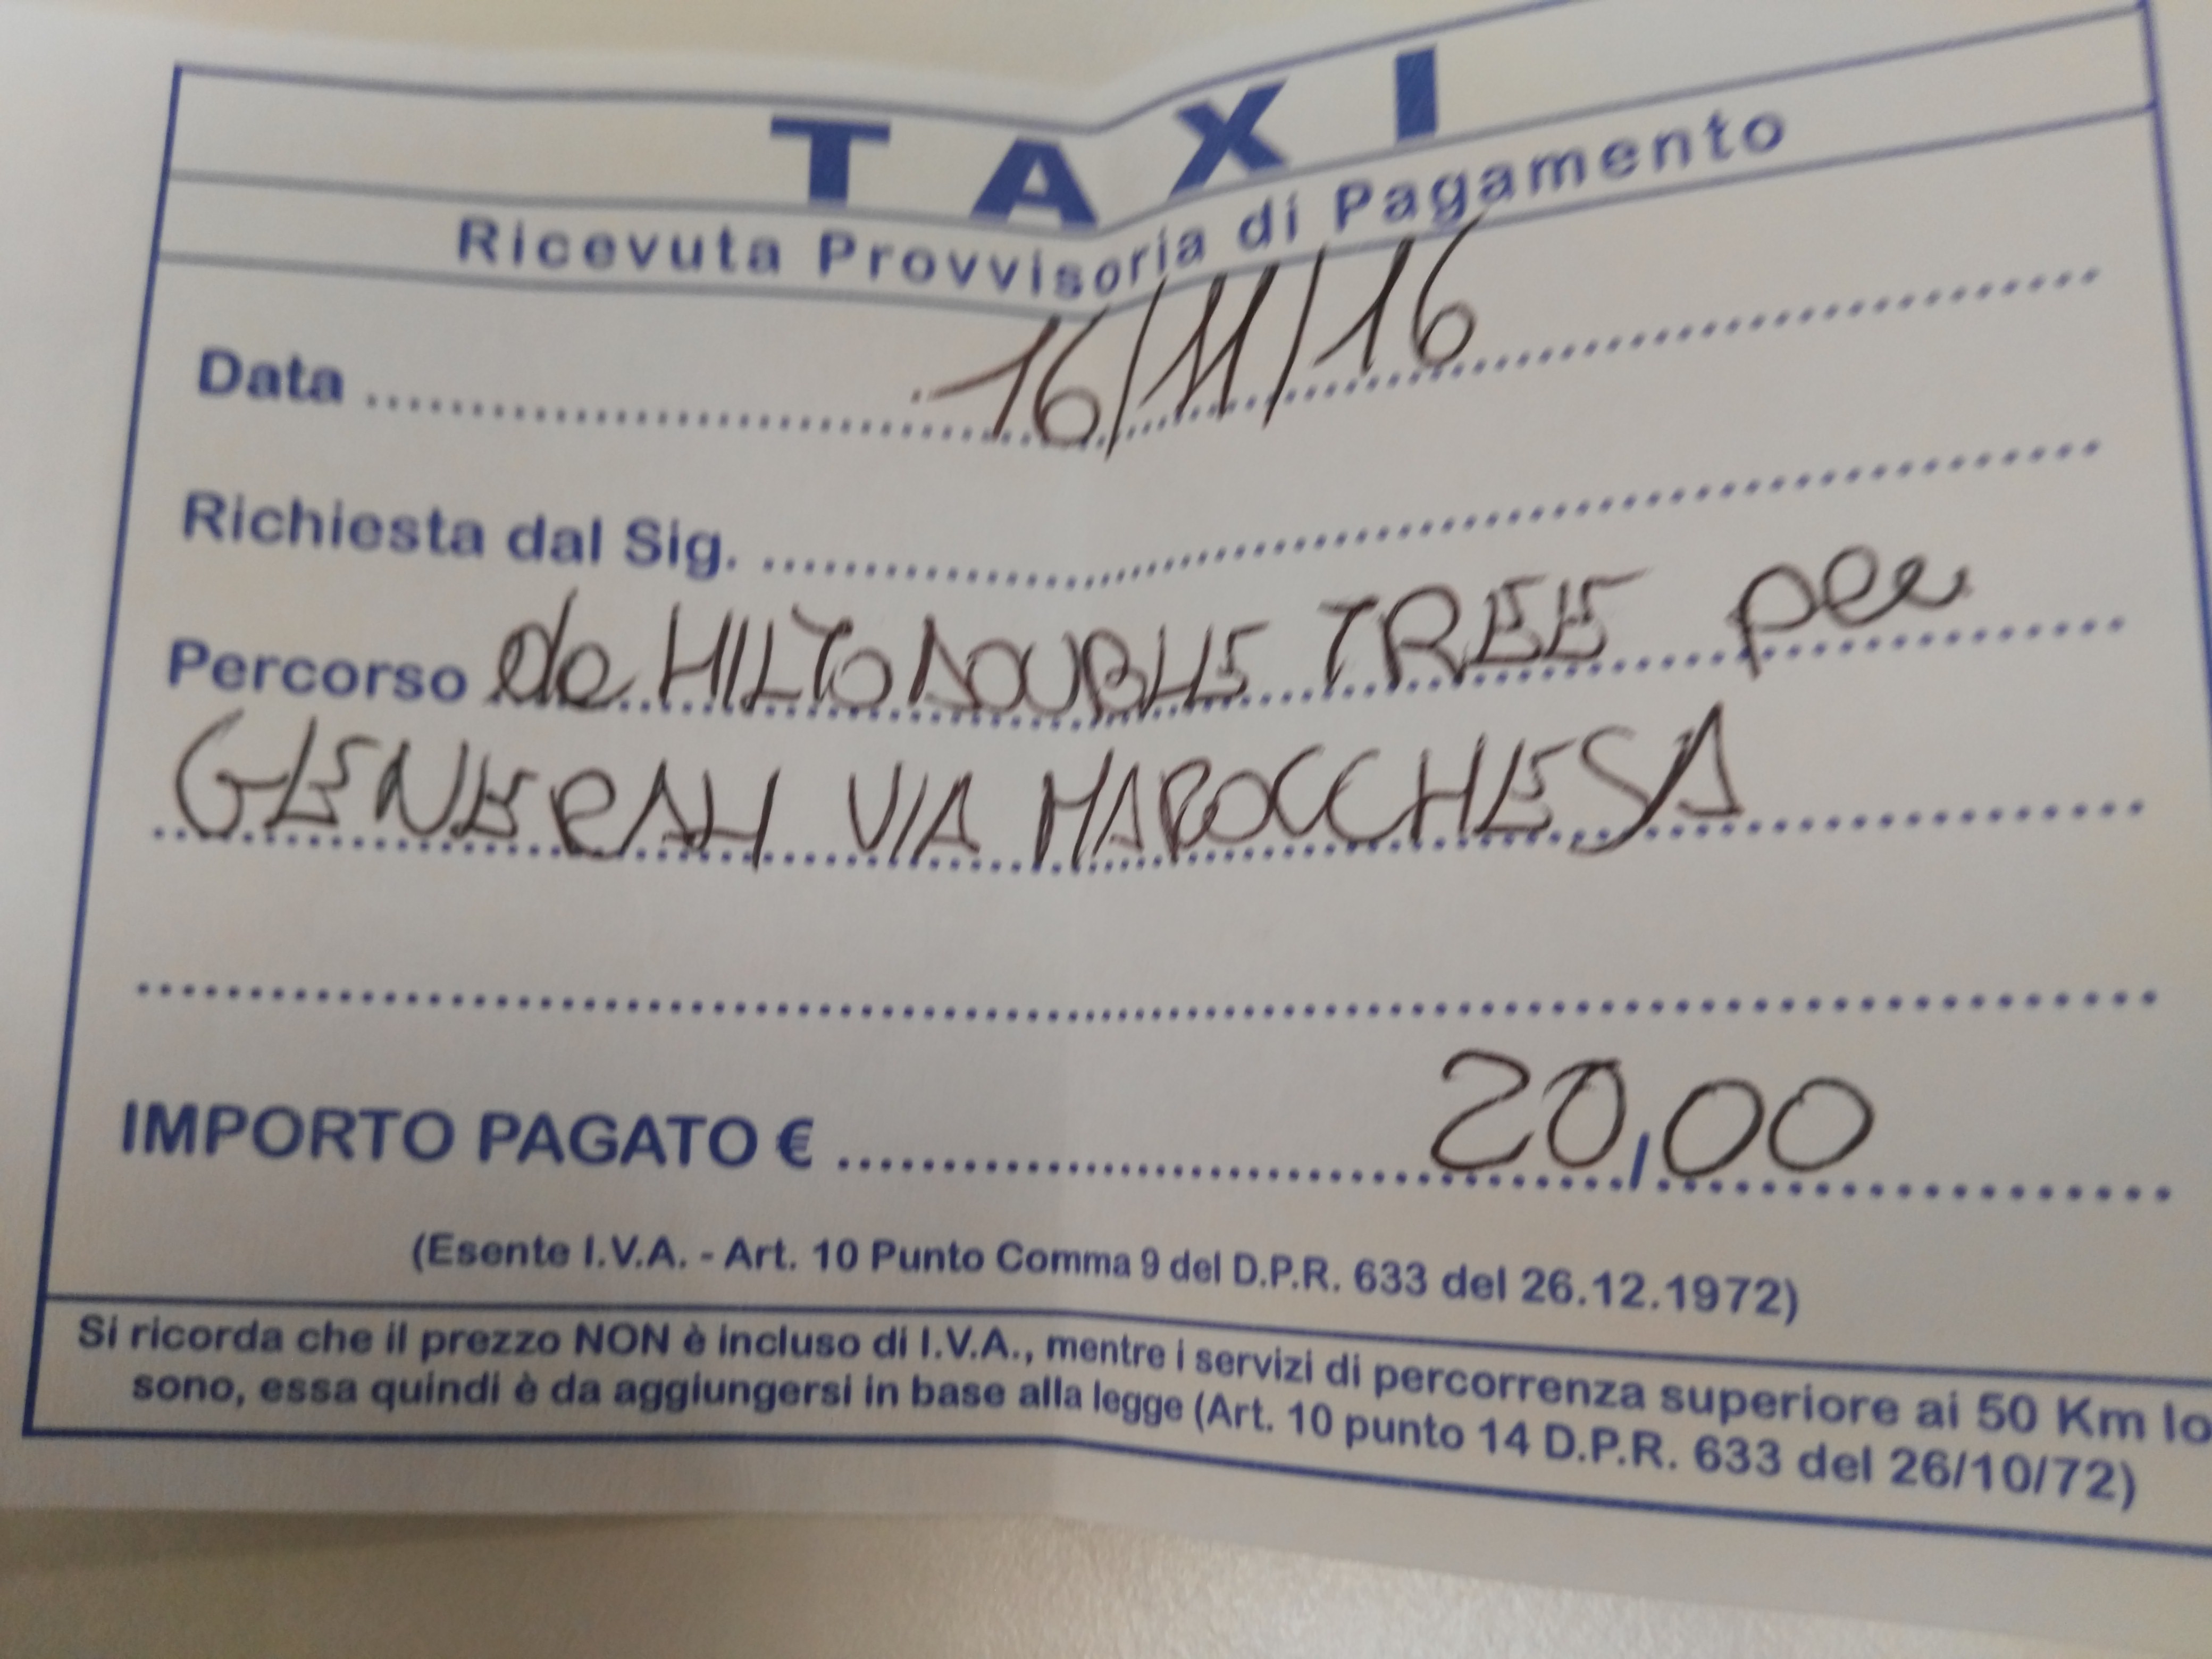 TAXI
Ricevuta Provvisoria di Pagamento
Data 16/11/16
Richiesta dal Sig.
Percorso da HILTO DOUBLE TREE per
GENERALI VIA MAROCCHESA
IMPORTO PAGATO € 20,00
(Esente I.V.A. - Art. 10 Punto Comma 9 del D.P.R. 633 del 26.12.1972)
Si ricorda che il prezzo NON è incluso di I.V.A., mentre i servizi di percorrenza superiore ai 50 Km lo
sono, essa quindi è da aggiungersi in base alla legge (Art. 10 punto 14 D.P.R. 633 del 26/10/72)